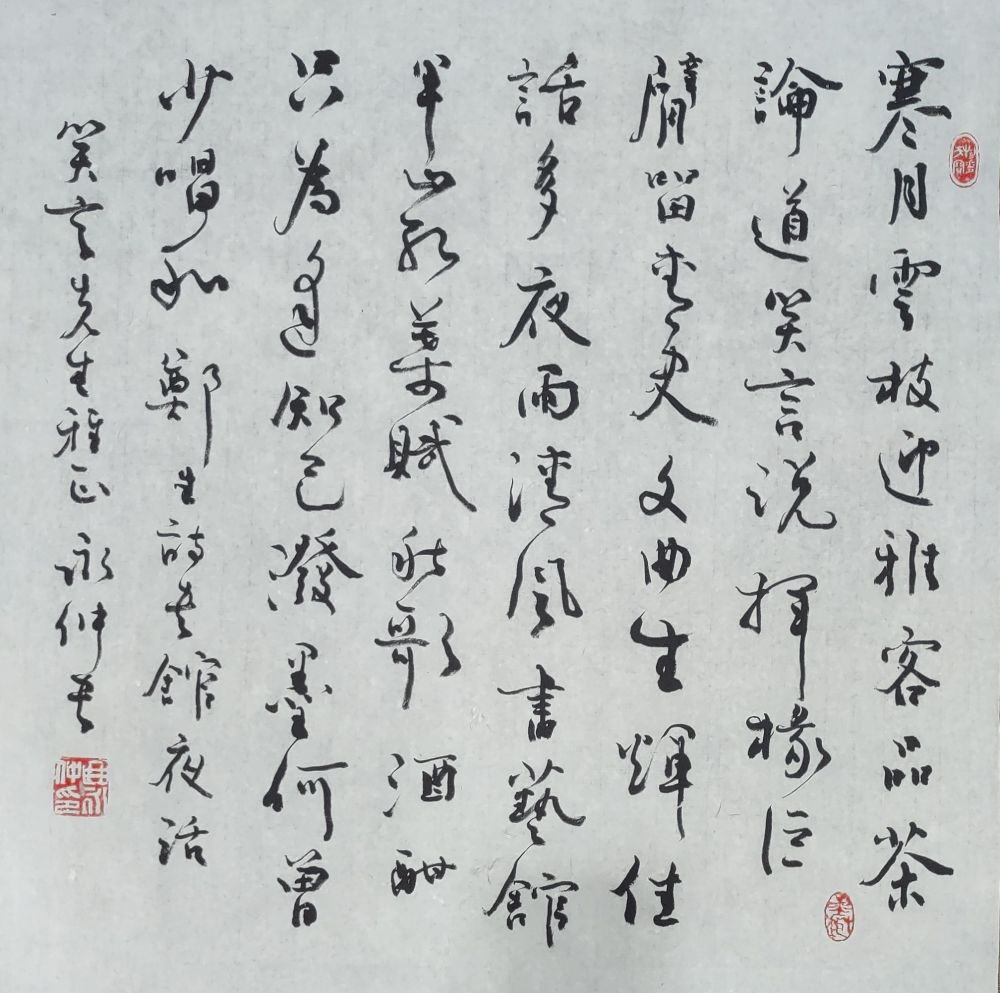 寒月雲枝迎雅客品茶
論道笑言説揮椽巨
臂留青史文曲生輝佳
話多夜雨清風書藝館
半山紅葉賦秋歌酒酣
只為逢知己潑墨何曾
少唱和鄭生詩書館夜話
笑言先生雅正永仲書